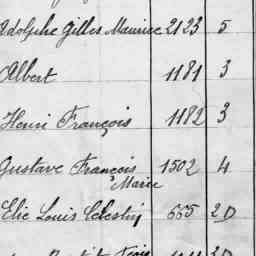 Adolphe Gilles Maurice 2123 5
Albert 1181 3
Henri François 1182 3
Gustave François 1502 4
Marie
Elie Louis Célestin 665 2D